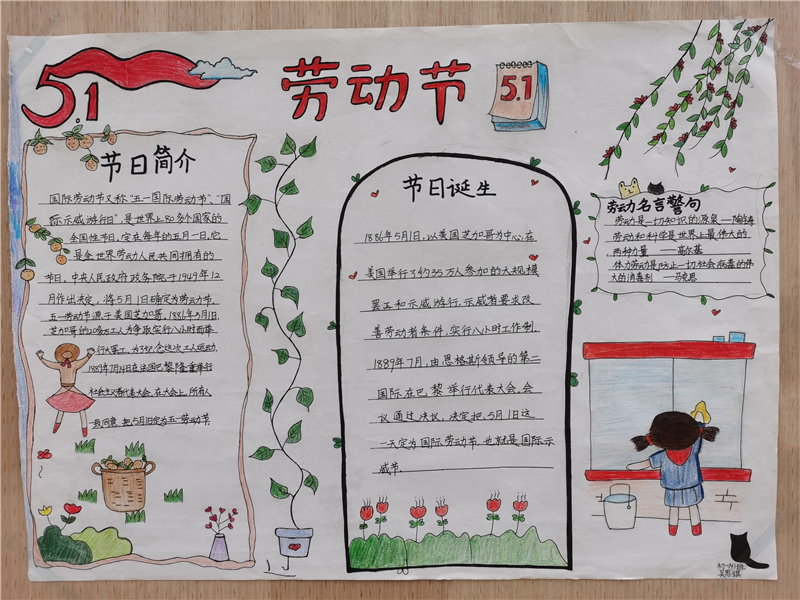 5.1
劳动节
5.1
节日简介
国际劳动节又称"五一国际劳动节"、"国
际示威游行日",是世界上80多个国家的
全国性节日。定在每年的五月一日。它
是全世界劳动人民共同拥有的
节日。中央人民政府政务院于1949年12
月作出决定,将5月1日确定为劳动节。
五一劳动节源于美国芝加哥,1886年5月1日,
芝加哥的20多万工人为争取实行八小时而举
行大罢工,为了纪念这次工人运动,
1889年7月14日在法国巴黎隆重举行
社会主义者代表大会,在大会上,所有人
一致同意,把5月1日定为五一劳动节。
节日诞生
1886年5月1日,以美国芝加哥为中心,在
美国举行了约35万人参加的大规模
罢工和示威游行,示威者要求改
善劳动者条件,实行八小时工作制。
1889年7月,由恩格斯领导的第二
国际在巴黎举行代表大会,会
议通过决议,决定把5月1日这
一天定为国际劳动节,也就是国际示
威节
劳动力名言警句
劳动是一切知识的源泉 ——陶铸
劳动和科学是世界上最伟大的
两种力量 ——高尔基
体力劳动是防止一切社会病毒的伟
大的消毒剂 ——马克思